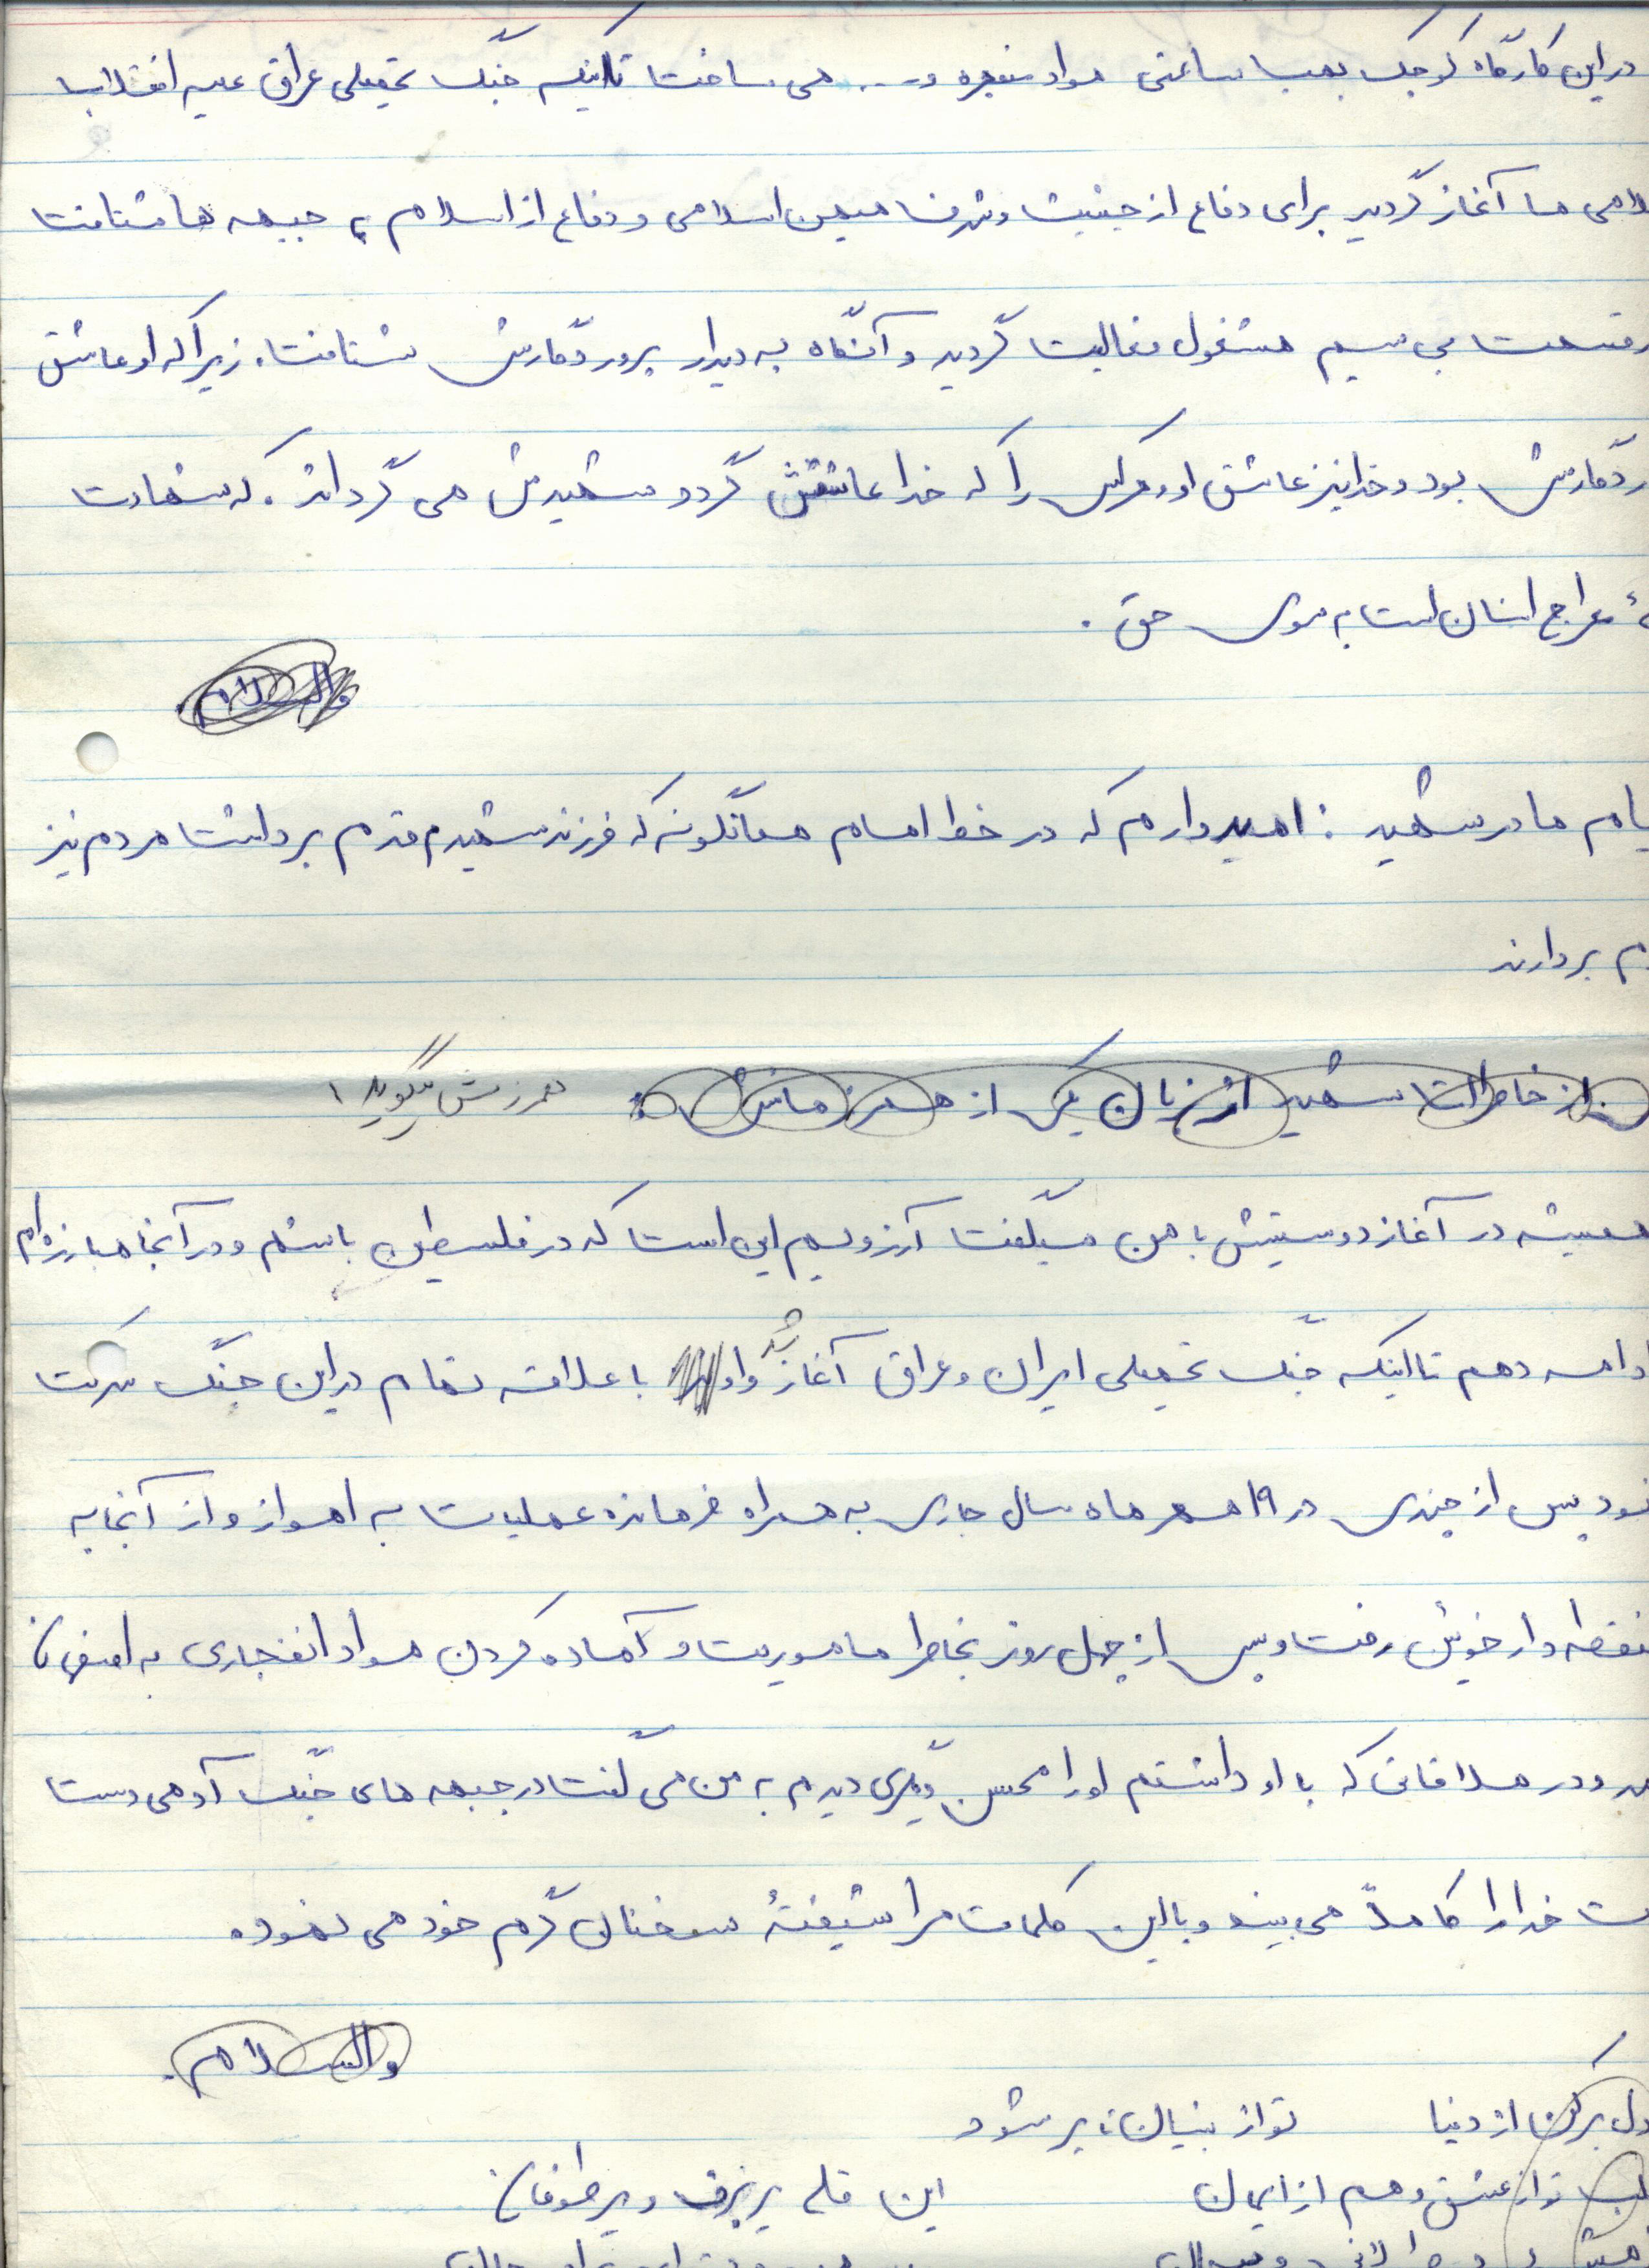 در این کارگاه کوچک بمب ساعتی مواد منفجره و... می ساخت تا اینکه جنگ تحمیلی عراق علیه انقلاب
لامی ما آغاز گردید برای دفاع از حیثیت و شرف میهن اسلامی و دفاع از اسلام به جبهه ها شتافت
رقسمت بی سیم مشغول فعالیت گردید و آنگاه به دیدار پروردگارش شتافت، زیرا که او عاشق
ردگارش بود و خدا نیز عاشق او و هر کس را که خدا عاشقش گردد شهیدش می گرداند. که شهادت
معراج انسان است به سوی حق.
والسلام
یام مادر شهید: امیدوارم که در خط امام همانگونه که فرزند شهیدم قدم برداشت مردم نیز
م بردارند
از خاطرات شهید از زبان یکی از همرزمانش: همرزمش میگوید:
همیشه در آغاز دوستیش با من میگفت آرزویم این است که در فلسطین باشم و در آنجا مبارزه ام
ادامه دهم تا اینکه جنگ تحمیلی ایران و عراق آغاز شد و او با علاقه تمام در این جنگ شرکت
نمود پس از چندی در ۱۹ مهر ماه سال جاری به همراه فرمانده عملیات به اهواز و از آنجا به
منطقه دارخوئین رفت و پس از چهل روز بخاطر ماموریت و آماده کردن مواد انفجاری به اصفهان
مد و در ملاقاتی که با او داشتم او را محسن دیگری دیدم به من می گفت در جبهه های جنگ آدمی دست
ت خدا را کاملاً می بیند و با این کلمات مرا شیفتهٔ سخنان گرم خود می نمود.
والسلام.
دل برکن از دنیا تو از بنیان، پر شود
لب تو از عشق و هم از ایمان این قله پر برف و پر طوفان